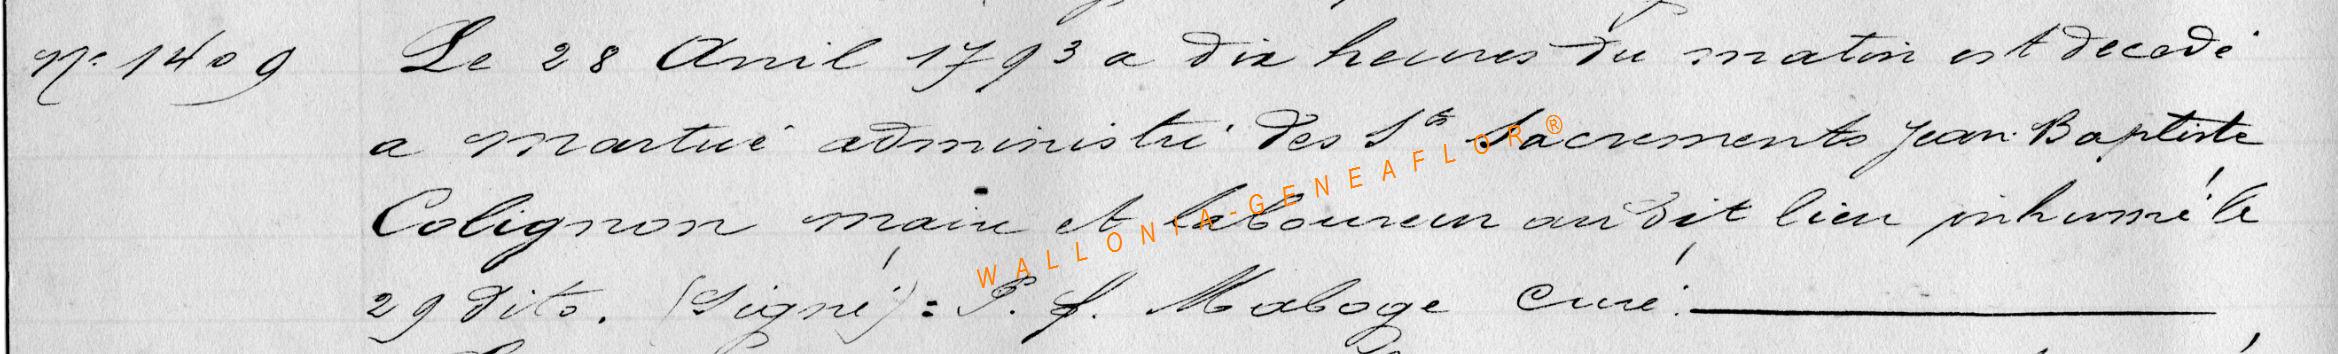 N° 1409 Le 28 Avril 1793 a dix heures du matin est decedé
a Martué administré des Sts Sacrements Jean Baptiste
Colignon maire et laboureur au dit lieu inhumé le
29 dito. (Signé) : P. J. Maboge Curé.
WALLONIA-GENEAFLOR®